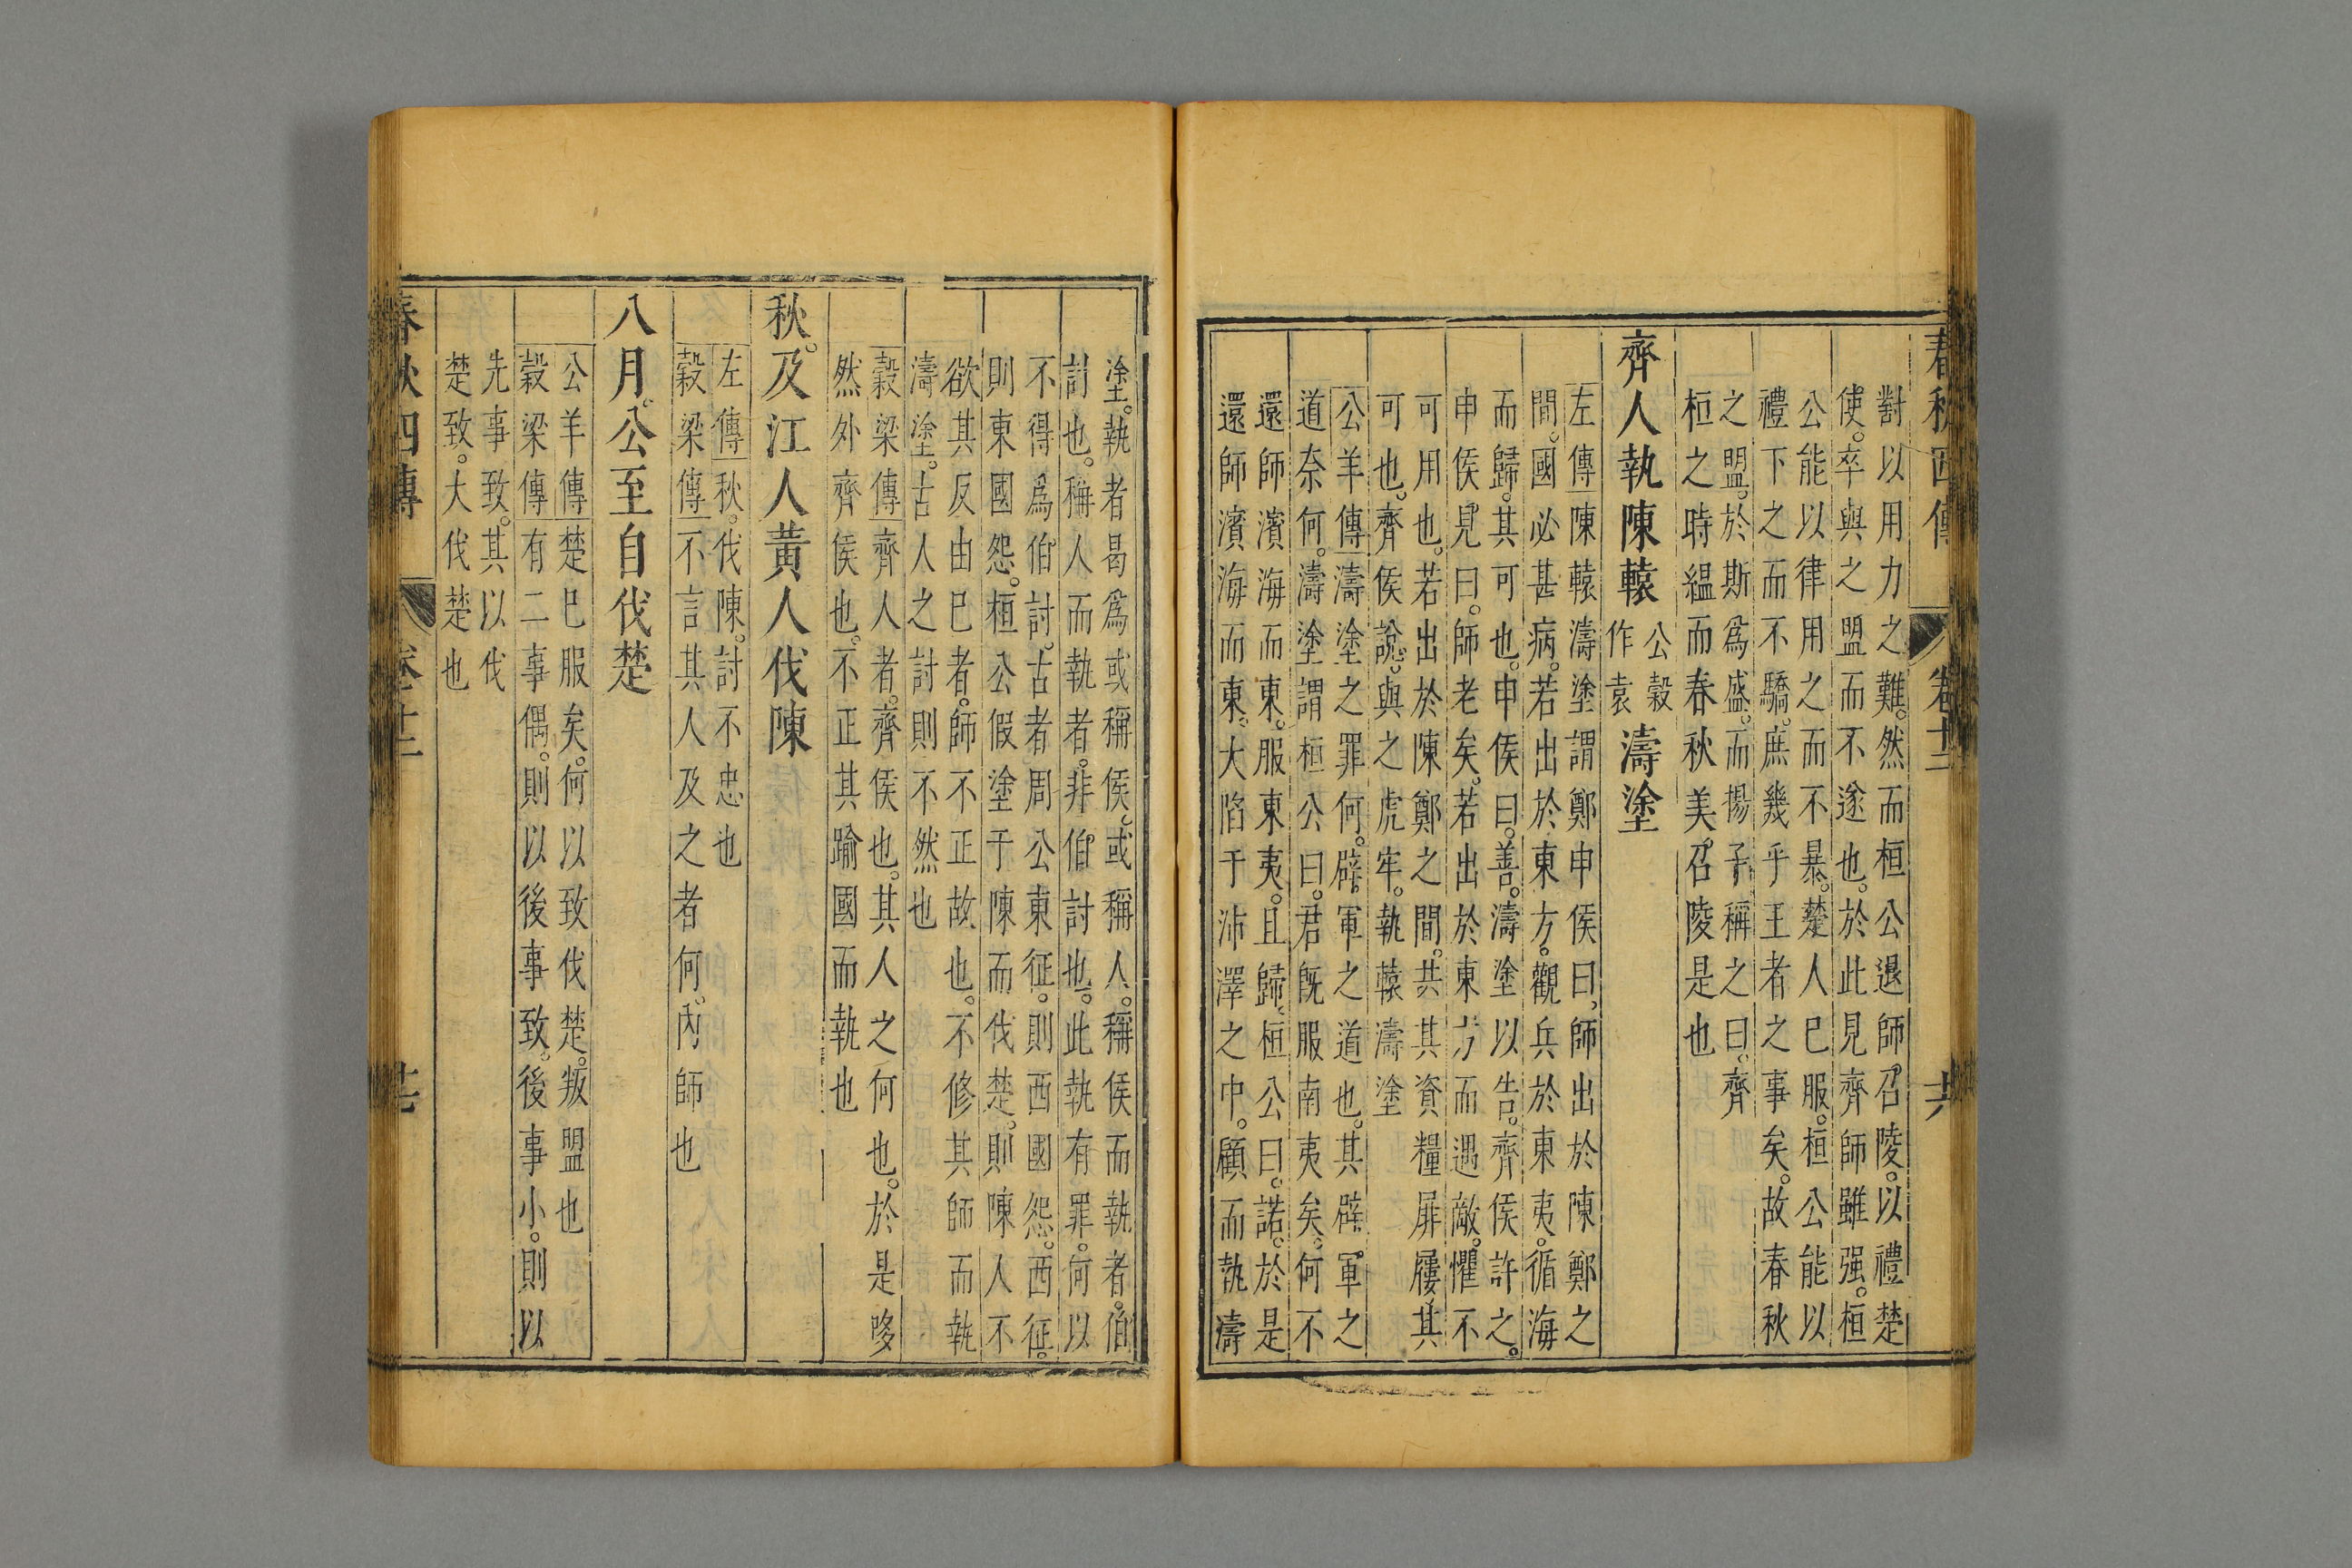 春秋四傳 卷十二 十六
對以用力之難。然而桓公退師。召陵。以禮楚
使。卒與之盟而不遂也。於此見齊師雖强。桓
公能以律用之而不暴。楚人已服。桓公能以
禮下之。而不驕。庶幾乎王者之事矣。故春秋
之盟。於斯爲盛。而揚子稱之曰。齊
桓之時縕而春秋美。召陵是也
齊人執陳轅公榖作袁濤塗
左傳陳轅濤塗謂鄭申侯曰。師出於陳鄭之
間。國必甚病。若出於東方。觀兵於東夷。循海
而歸。其可也。申侯曰。善。濤塗以告。齊侯許之。
申侯見曰。師老矣。若出於東方而遇敵。懼不
可用也。若出於陳鄭之間。共其資糧屝屨。其
可也。齊侯說。與之虎牢。執轅濤塗
公羊傳濤塗之罪何。辟軍之道也。其辟軍之
道奈何。濤塗謂桓公曰。君旣服南夷矣。何不
還師濱海而東。服東夷。且歸。桓公曰。諾。於是
還師濱海而東。大陷于沛澤之中。顧而執濤
塗。執者曷爲或稱侯。或稱人。稱侯而執者。伯
討也。稱人而執者。非伯討也。此執有罪。何以
不得爲伯討。古者周公東征。則西國怨。西征。
則東國怨。桓公假塗于陳而伐楚。則陳人不
欲其反由已者。師不正故也。不修其師而執
濤塗。古人之討則不然也
榖梁傳齊人者。齊侯也。其人之何也。於是哆
然外齊侯也。不正其踰國而執也
秋。及江人黃人伐陳
左傳秋。伐陳。討不忠也
榖梁傳不言其人及之者何。內師也
八月。公至自伐楚
公羊傳楚已服矣。何以致伐楚。叛盟也
榖梁傳有二事偶。則以後事致。後事小。則以
先事致。其以伐
楚致。大伐楚也
春秋四傳 卷十二 十七